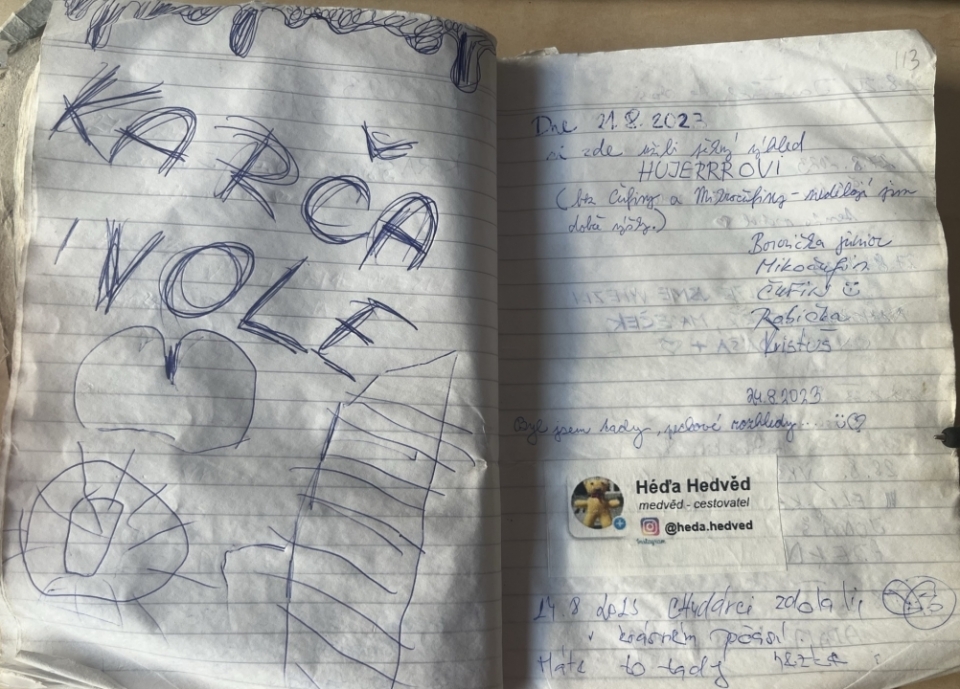 KARČA
VOLE
113
Dne 21.8.2023
si zde užili výhled
HUJERRROVI
(bez Čufiny a Mikročufiny - nedělají jim
dobře výšky.)
Borovička júnior
Mikočufin
ČUFIN
Rabička
Kristuš
24.8.2023
Byl jsem tady, rozhledy...
Héďa Hedvěd
medvěd - cestovatel
Instagram
@heda.hedved
zdolali
v krásném počasí.
Máte to tady